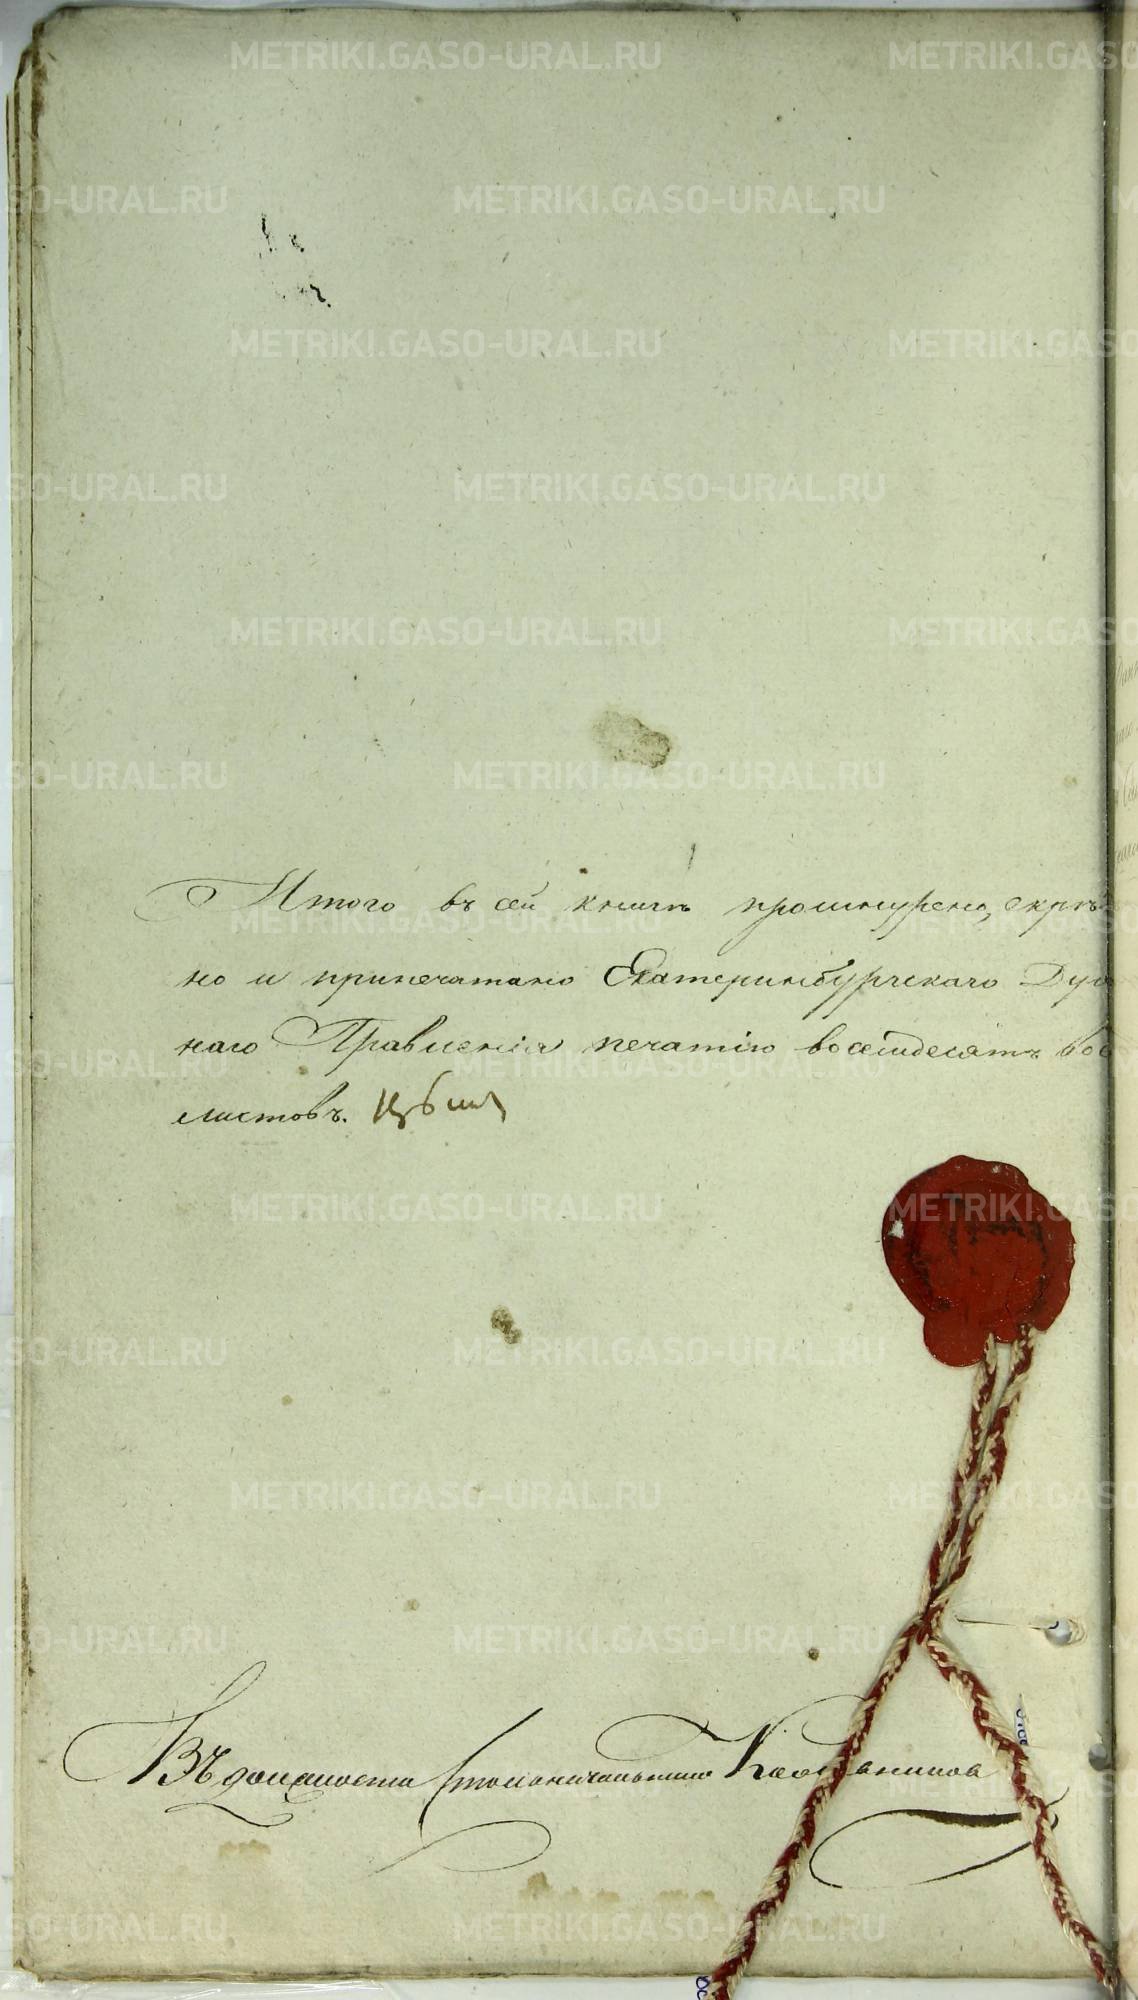 METRIKI.GASO-URAL.RU
Итого въ сей книгѣ прошнурено, скрѣ
но и припечатано Екатеринбургскаго Дух
наго Правленія печатію восемдесятъ вос
листовъ.
Въ должности Столоначальника